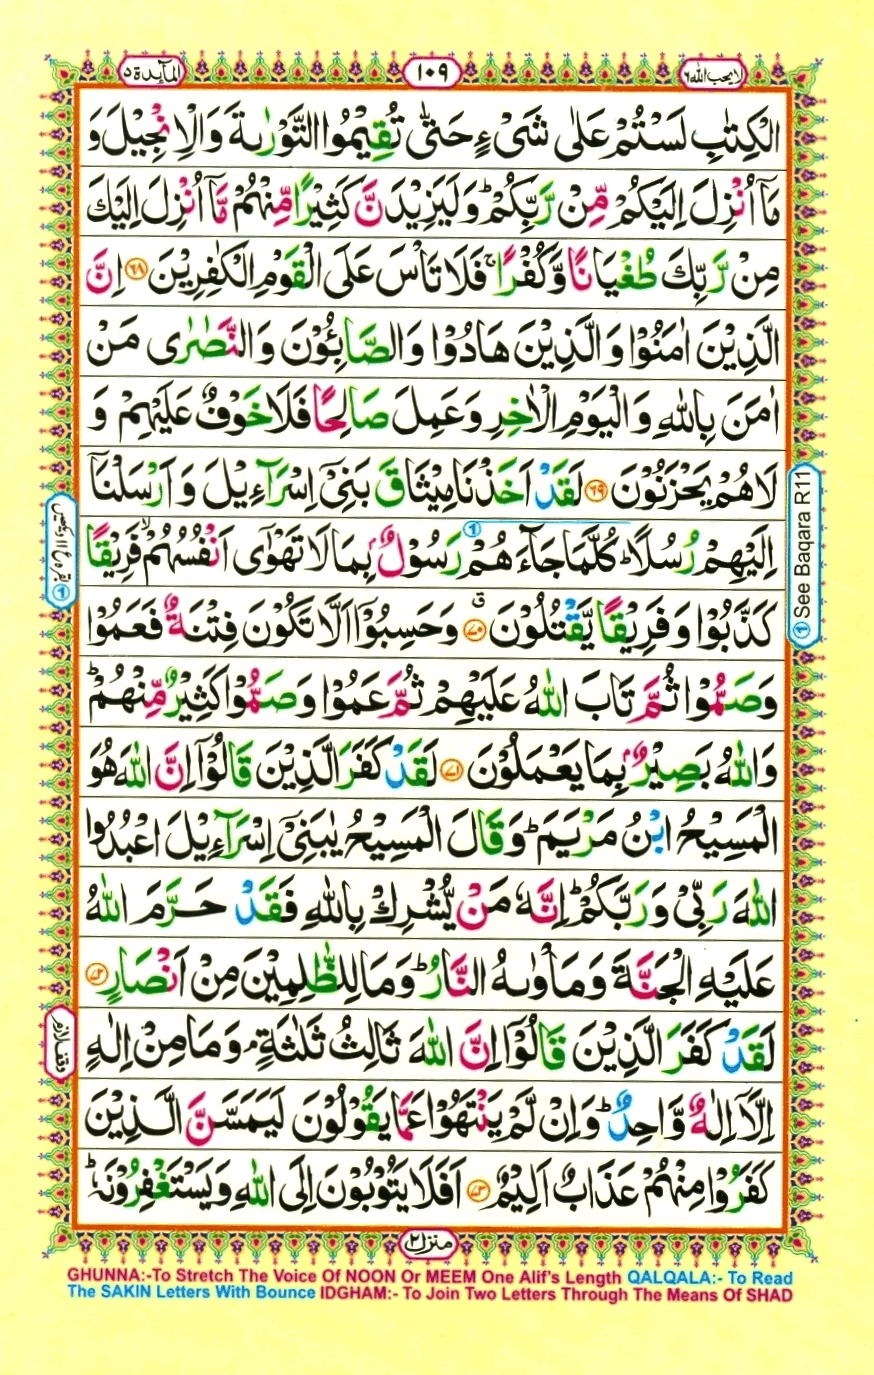 لایحب اللہ ۶
۱۰۹
المآىِٕدة ۵
الْكِتٰبِ لَسْتُمْ عَلٰى شَیْءٍ حَتّٰى تُقِیْمُوا التَّوْرٰىةَ وَ الْاِنْجِیْلَ وَ
مَاۤ اُنْزِلَ اِلَیْكُمْ مِّنْ رَّبِّكُمْ ؕ وَ لَیَزِیْدَنَّ كَثِیْرًا مِّنْهُمْ مَّاۤ اُنْزِلَ اِلَیْكَ
مِنْ رَّبِّكَ طُغْیَانًا وَّ كُفْرًا ۚ فَلَا تَاْسَ عَلَى الْقَوْمِ الْكٰفِرِیْنَ ﴿۶۸﴾ اِنَّ
الَّذِیْنَ اٰمَنُوْا وَ الَّذِیْنَ هَادُوْا وَ الصَّابِـُٔوْنَ وَ النَّصٰرٰى مَنْ
اٰمَنَ بِاللّٰهِ وَ الْیَوْمِ الْاٰخِرِ وَ عَمِلَ صَالِحًا فَلَا خَوْفٌ عَلَیْهِمْ وَ
لَا هُمْ یَحْزَنُوْنَ ﴿۶۹﴾ لَقَدْ اَخَذْنَا مِیْثَاقَ بَنِیْۤ اِسْرَآءِیْلَ وَ اَرْسَلْنَاۤ
اِلَیْهِمْ رُسُلًا ؕ كُلَّمَا جَآءَهُمْ رَسُوْلٌۢ بِمَا لَا تَهْوٰۤى اَنْفُسُهُمْ ۙ فَرِیْقًا
كَذَّبُوْا وَ فَرِیْقًا یَّقْتُلُوْنَ ۗ﴿۷۰﴾ وَ حَسِبُوْۤا اَلَّا تَكُوْنَ فِتْنَةٌ فَعَمُوْا
وَ صَمُّوْا ثُمَّ تَابَ اللّٰهُ عَلَیْهِمْ ثُمَّ عَمُوْا وَ صَمُّوْا كَثِیْرٌ مِّنْهُمْ ؕ
وَ اللّٰهُ بَصِیْرٌۢ بِمَا یَعْمَلُوْنَ ﴿۷۱﴾ لَقَدْ كَفَرَ الَّذِیْنَ قَالُوْۤا اِنَّ اللّٰهَ هُوَ
الْمَسِیْحُ ابْنُ مَرْیَمَ ؕ وَ قَالَ الْمَسِیْحُ یٰبَنِیْۤ اِسْرَآءِیْلَ اعْبُدُوا
اللّٰهَ رَبِّیْ وَ رَبَّكُمْ ؕ اِنَّهٗ مَنْ یُّشْرِكْ بِاللّٰهِ فَقَدْ حَرَّمَ اللّٰهُ
عَلَیْهِ الْجَنَّةَ وَ مَاْوٰىهُ النَّارُ ؕ وَ مَا لِلظّٰلِمِیْنَ مِنْ اَنْصَارٍ ﴿۷۲﴾
لَقَدْ كَفَرَ الَّذِیْنَ قَالُوْۤا اِنَّ اللّٰهَ ثَالِثُ ثَلٰثَةٍ ۘ وَ مَا مِنْ اِلٰهٍ
اِلَّاۤ اِلٰهٌ وَّاحِدٌ ؕ وَ اِنْ لَّمْ یَنْتَهُوْا عَمَّا یَقُوْلُوْنَ لَیَمَسَّنَّ الَّذِیْنَ
كَفَرُوْا مِنْهُمْ عَذَابٌ اَلِیْمٌ ﴿۷۳﴾ اَفَلَا یَتُوْبُوْنَ اِلَى اللّٰهِ وَ یَسْتَغْفِرُوْنَهٗ ؕ
منزل ۲
① See Baqara R11
① بقرہ ع ۱۱ دیکھیں
وقف لازم
GHUNNA:-To Stretch The Voice Of NOON Or MEEM One Alif's Length QALQALA:- To Read
The SAKIN Letters With Bounce IDGHAM:- To Join Two Letters Through The Means Of SHAD